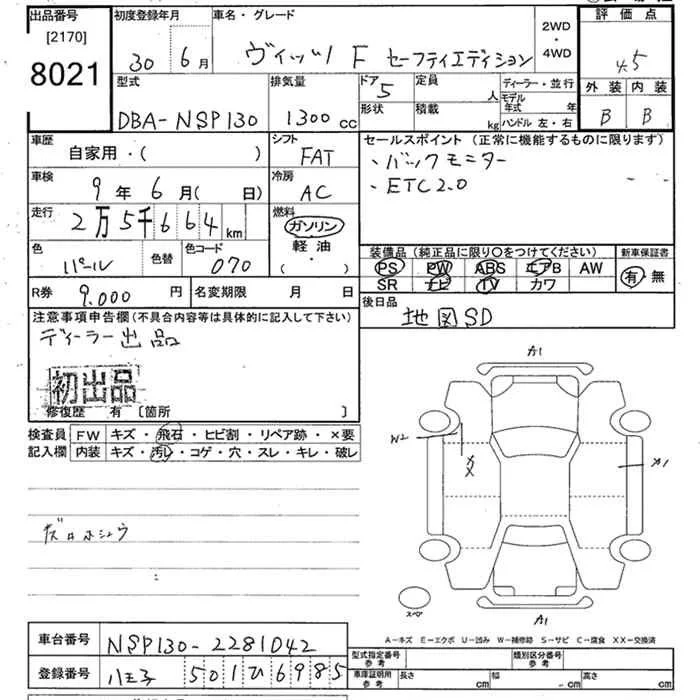 出品番号
[2170]
8021
初度登録年月
30年 6月
車名・グレード
ヴィッツ F セーフティエディション
2WD
・
4WD
評価点
4.5
外装 内装
B B
型式
DBA-NSP130
排気量
1300 cc
ドア
5
形状
定員
人
積載
kg
ディーラー・並行
モデル年式 年
ハンドル 左・右
車歴
自家用・( )
シフト
FAT
車検
9年 6月( 日)
冷房
AC
走行
2万5千664km
燃料
ガソリン
軽油・
( ・ )
色
パール
色替
色コード
070
R券 9.000 円
名変期限 月 日
セールスポイント (正常に機能するものに限ります)
・バックモニター
・ETC2.0
装備品 (純正品に限り〇をつけてください)
PS PW ABS エアB AW
SR ナビ TV カワ
新車保証書
有・無
後日品
地図SD
注意事項申告欄(不具合内容等は具体的に記入して下さい)
ディーラー出品
初出品
修復歴 有 [箇所 ]
検査員記入欄
FW キズ・飛石・ヒビ割・リペア跡・×要
内装 キズ・汚レ・コゲ・穴・スレ・キレ・破レ
A1
W2
XX
A1
スペア
A1
A-キズ E-エクボ U-凹み W-補修跡 S-サビ C-腐食 XX-交換済
車台番号 NSP130-2281042
登録番号 八王子 501ひ6985
型式指定番号
参考
類別区分番号
参考
車庫証明用
参考
長さ cm 幅 cm 高さ cm